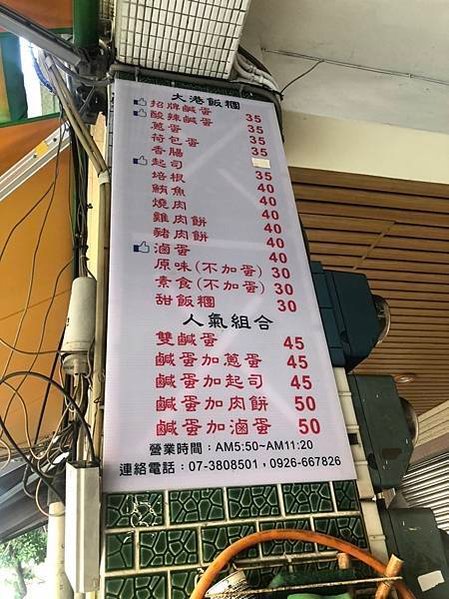 大港飯糰
招牌鹹蛋 35
酸辣鹹蛋 35
蔥蛋 35
荷包蛋 35
香腸
起司 35
培根 40
鮪魚 40
燒肉 40
雞肉餅 40
豬肉餅 40
滷蛋 40
原味(不加蛋) 30
素食(不加蛋) 30
甜飯糰 30
人氣組合
雙鹹蛋 45
鹹蛋加蔥蛋 45
鹹蛋加起司 45
鹹蛋加肉餅 50
鹹蛋加滷蛋 50
營業時間：AM5:50~AM11:20
連絡電話：07-3808501，0926-667826